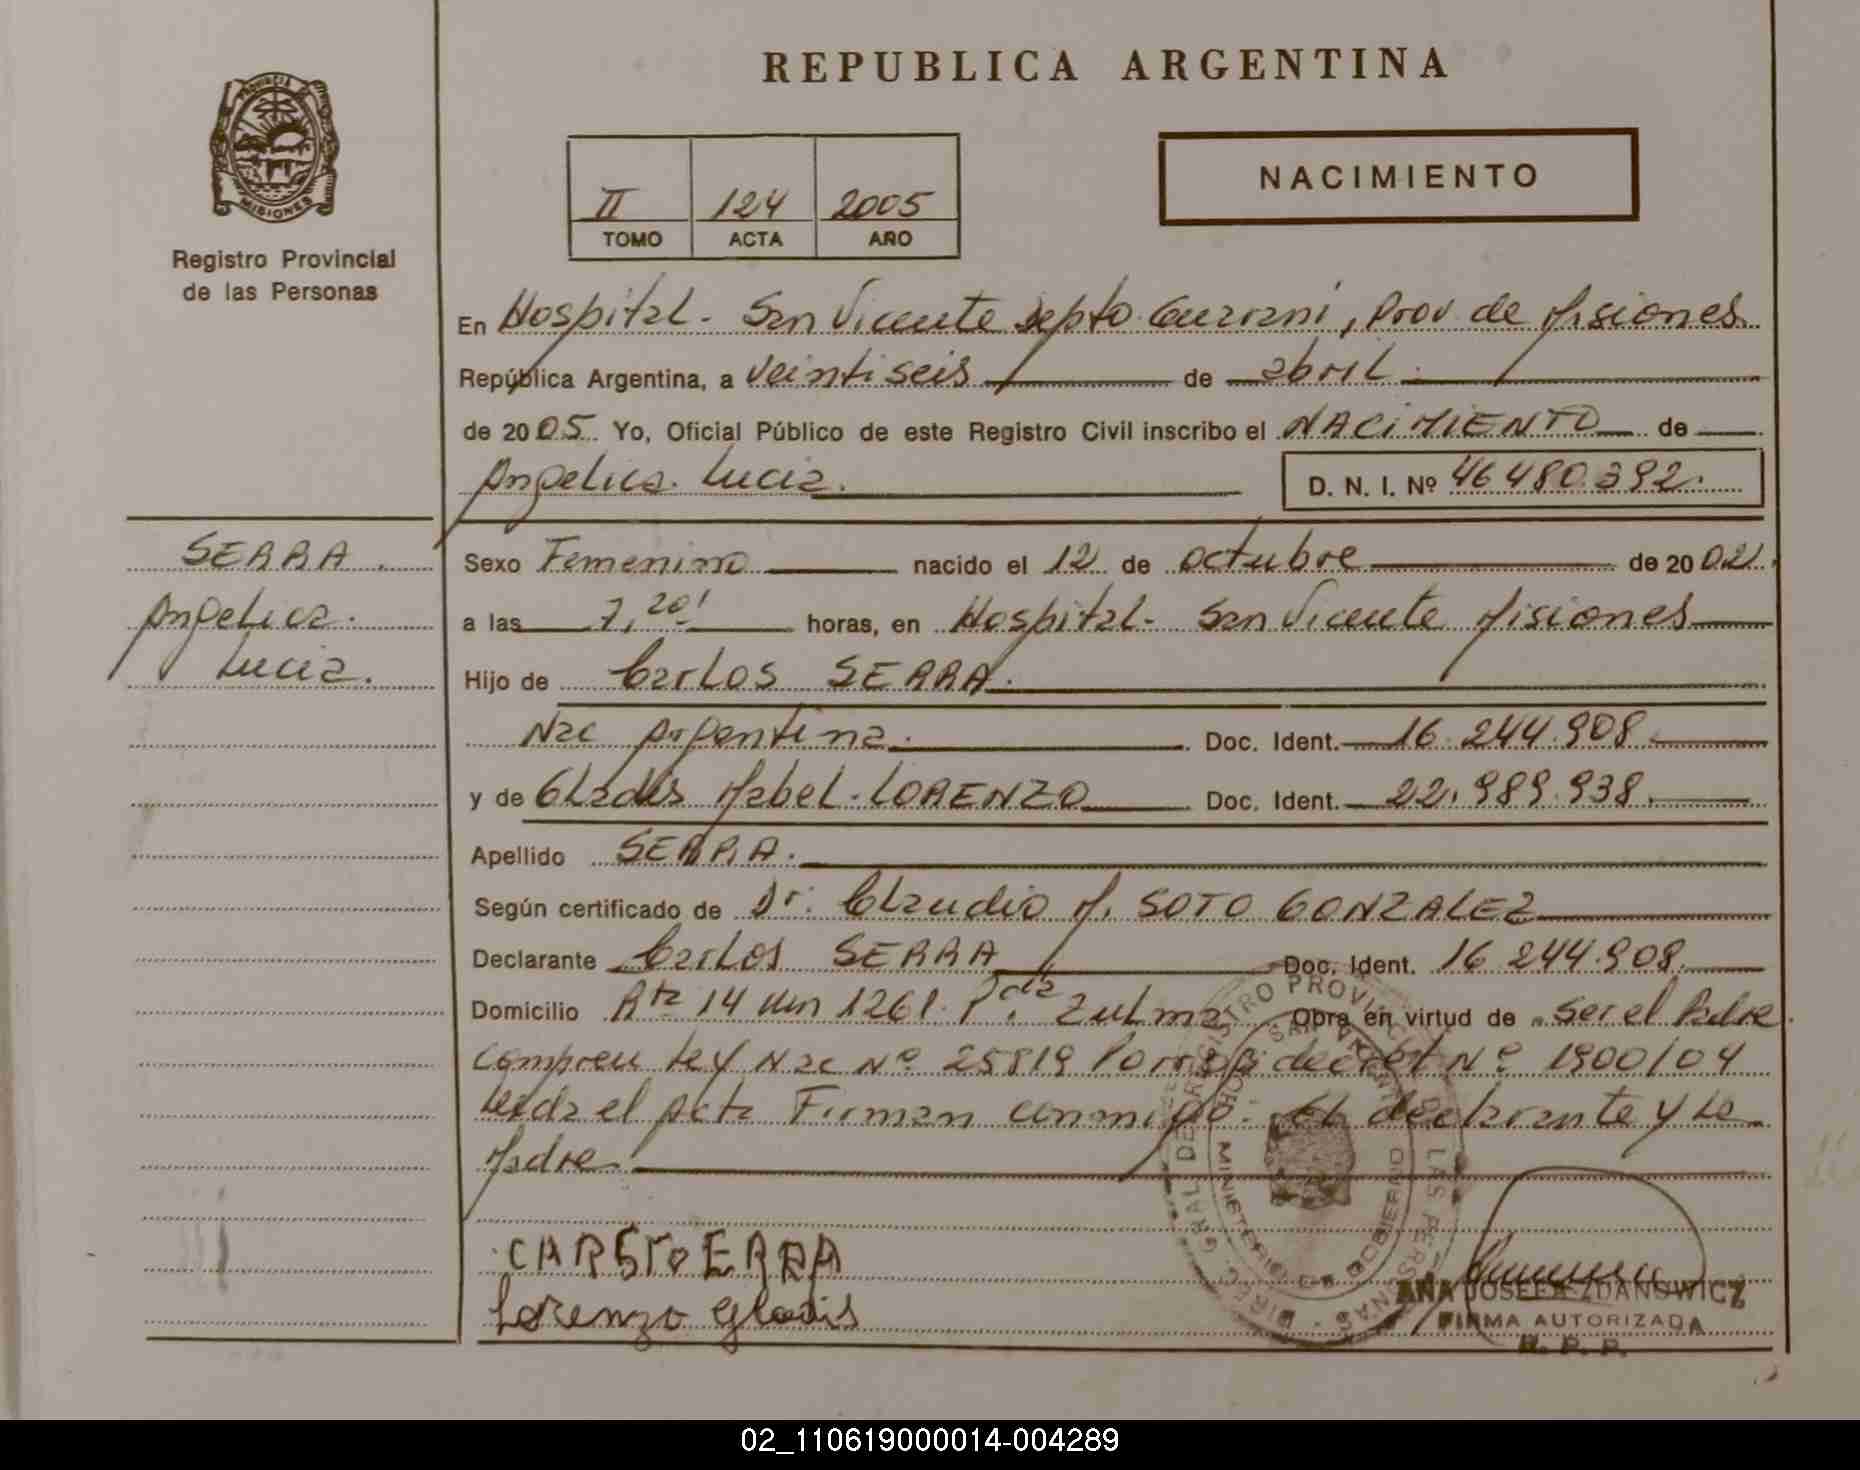 REPUBLICA ARGENTINA
PROVINCIA
MISIONES
Registro Provincial
de las Personas
NACIMIENTO
II 124 2005
TOMO ACTA AÑO
En Hospital - San Vicente Depto Guarani, Prov de Misiones
República Argentina, a veintiseis de abril
de 2005 Yo, Oficial Público de este Registro Civil inscribo el NACIMIENTO de
Angelica Lucia. D. N. I. Nº 46480.392.
SERRA
Angelica
Lucia.
Sexo Femenino nacido el 12 de octubre de 2002
a las 7,20' horas, en Hospital - San Vicente Misiones
Hijo de Carlos SERRA.
Nac Argentina. Doc. Ident. 16.244.908.
y de Gladis Mabel LORENZO Doc. Ident. 22.989.938.
Apellido SERRA.
Según certificado de Dr. Claudio M. SOTO GONZALEZ
Declarante Carlos SERRA Doc. Ident. 16.244.908.
Domicilio Rta 14 km 1261. Pda Zulma Obra en virtud de ser el Padre
Ley Nac Nº 25819 decret Nº 1900/04
Leida el Acta Firman conmigo. el declarante y la
Madre
CARLTO ERRA
Lorenzo Gladis
DIREC. GRAL DE REGISTRO PROVINCIAL DE LAS PERSONAS
MINISTERIO DE GOBIERNO
ANA JOSEFA ZDANOWICZ
FIRMA AUTORIZADA
R. P. P.
02_110619000014-004289